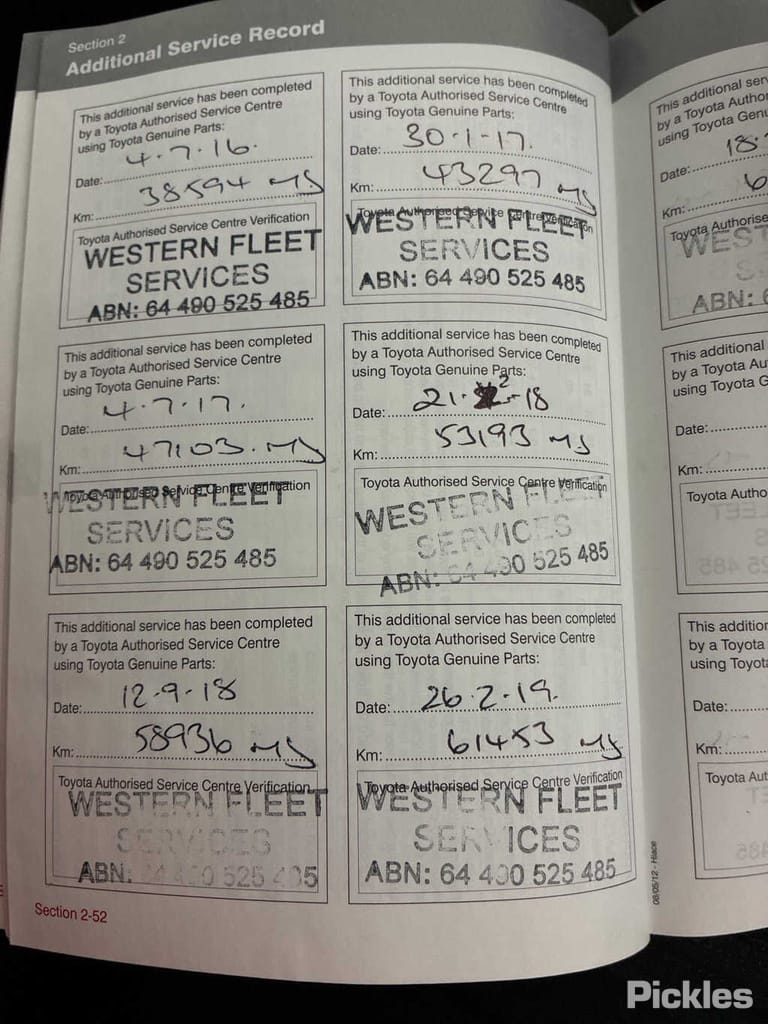 Section 2
Additional Service Record
This additional service has been completed
by a Toyota Authorised Service Centre
using Toyota Genuine Parts:
Date: 4.7.16.
Km: 38594 MJ
Toyota Authorised Service Centre Verification
WESTERN FLEET
SERVICES
ABN: 64 490 525 485
This additional service has been completed
by a Toyota Authorised Service Centre
using Toyota Genuine Parts:
Date: 30.1.17.
Km: 43297 MJ
Toyota Authorised Service Centre Verification
WESTERN FLEET
SERVICES
ABN: 64 490 525 485
This additional service has been completed
by a Toyota Authorised Service Centre
using Toyota Genuine Parts:
Date: 4.7.17.
Km: 47103. MJ
Toyota Authorised Service Centre Verification
WESTERN FLEET
SERVICES
ABN: 64 490 525 485
This additional service has been completed
by a Toyota Authorised Service Centre
using Toyota Genuine Parts:
Date: 21.2-18
Km: 53193 MJ
Toyota Authorised Service Centre Verification
WESTERN FLEET
SERVICES
ABN: 64 490 525 485
This additional service has been completed
by a Toyota Authorised Service Centre
using Toyota Genuine Parts:
Date: 12.9.18
Km: 58936 MJ
Toyota Authorised Service Centre Verification
WESTERN FLEET
SERVICES
ABN: 64 490 525 485
This additional service has been completed
by a Toyota Authorised Service Centre
using Toyota Genuine Parts:
Date: 26.2.19.
Km: 61453 MJ
Toyota Authorised Service Centre Verification
WESTERN FLEET
SERVICES
ABN: 64 490 525 485
Section 2-52
08/05/12 - Hiace
This additional ser
by a Toyota Author
using Toyota Genu
Date: 18.
Km: 6
Toyota Authorise
WEST
ABN: 6
This additional
by a Toyota Au
using Toyota G
Date:
Km:
Toyota Autho
This addition
by a Toyota
using Toyot
Date:
Km:
Toyota Aut
Pickles